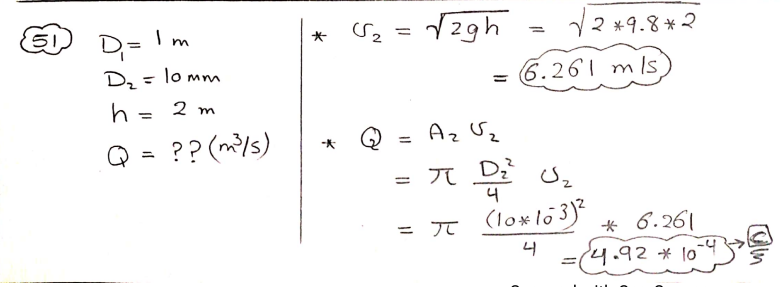 51
D₁ = 1 m
D₂ = 10 mm
h = 2 m
Q = ?? (m³/s)
* υ₂ = √2gh = √2*9.8*2
= 6.261 m/s
* Q = A₂ υ₂
= π D₂²/4 υ₂
= π (10*10⁻³)²/4 * 6.261
= 4.92 * 10⁻⁴ →